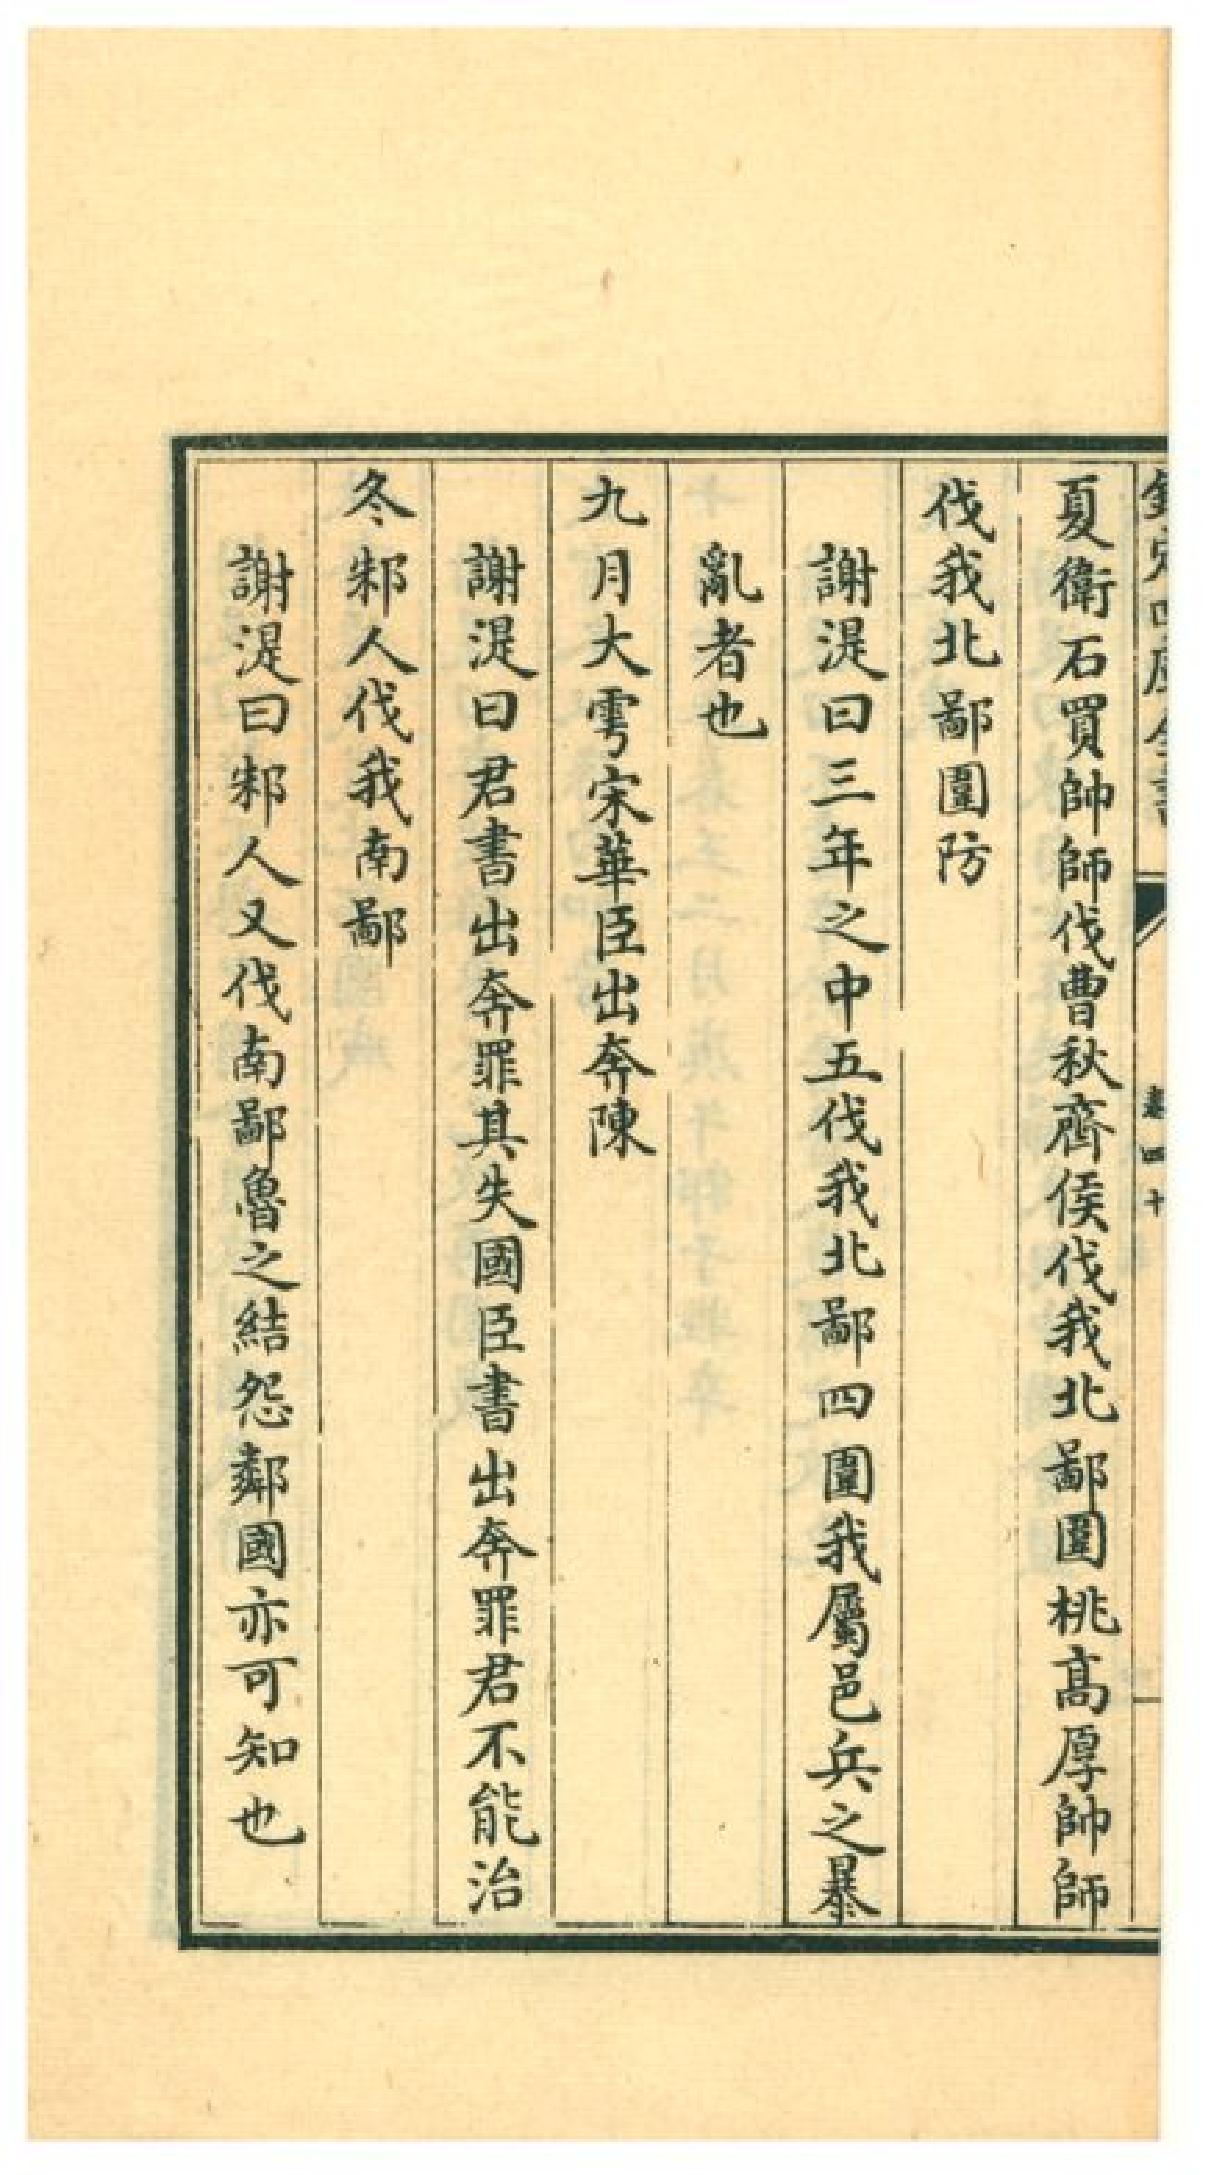 欽定四庫全書
卷四十
夏衛石買帥師伐曹秋齊侯伐我北鄙圍桃髙厚帥師
伐我北鄙圍防
謝湜曰三年之中五伐我北鄙四圍我屬邑兵之暴
亂者也
九月大雩宋華臣出奔陳
謝湜曰君書出奔罪其失國臣書出奔罪君不能治
冬邾人伐我南鄙
謝湜曰邾人又伐南鄙魯之結怨鄰國亦可知也